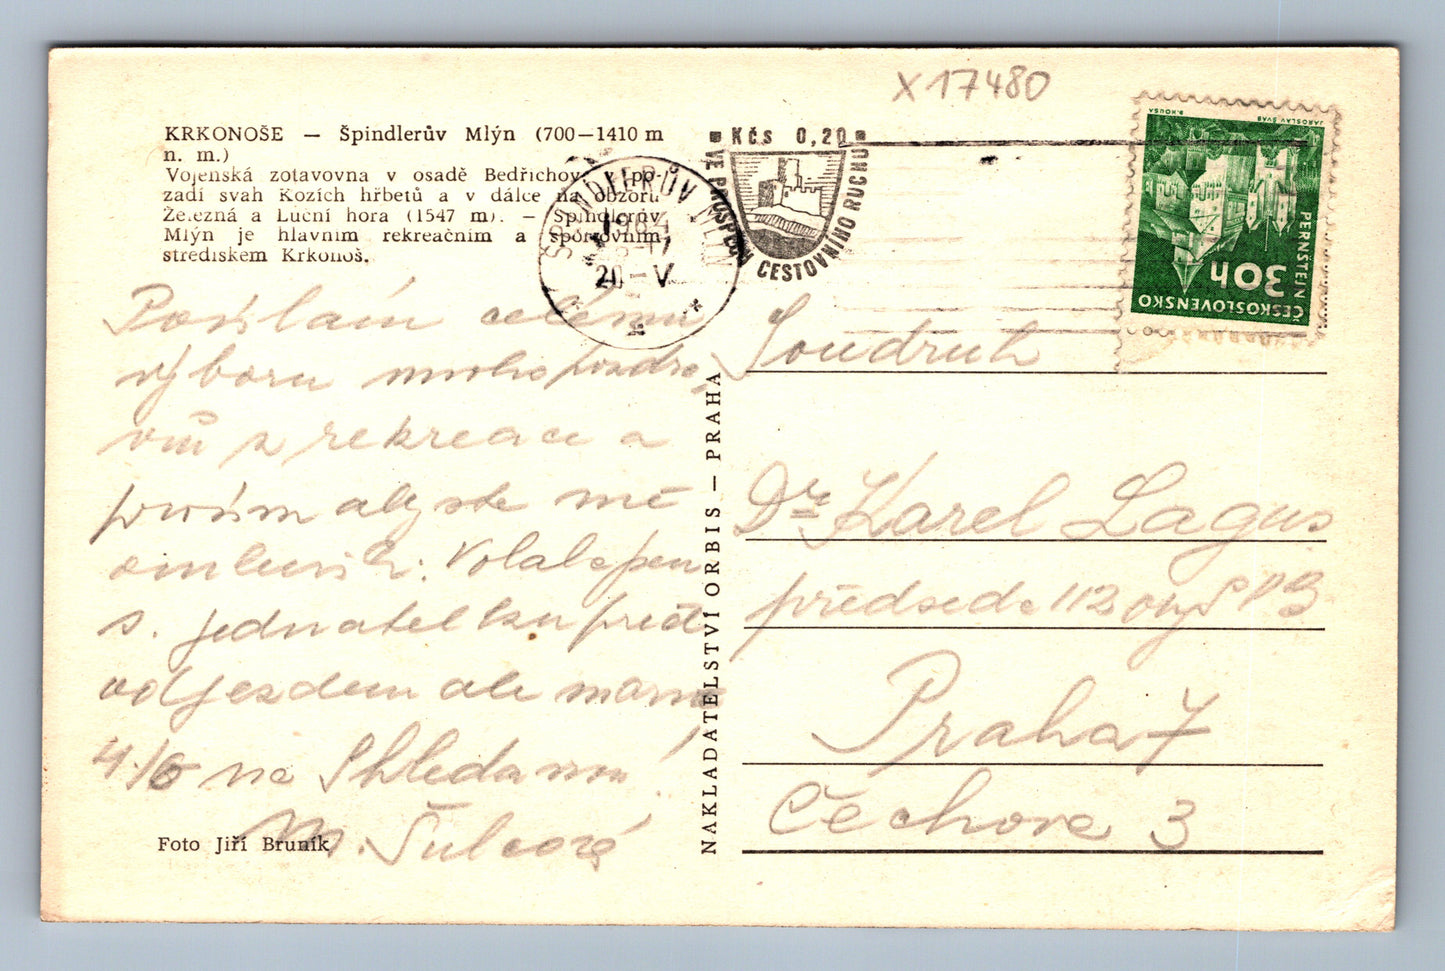 X17480
KRKONOŠE — Špindlerův Mlýn (700—1410 m
n. m.)
Vojenská zotavovna v osadě Bedřichov,
zadí svah Kozích hřbetů a v dálce na obzoru
Železná a Luční hora (1547 m). — Špindlerův
Mlýn je hlavním rekreačním a sportovním
střediskem Krkonoš.
ŠPINDLERŮV MLÝN
1964
20 V
Kčs 0,20
VE PROSPĚCH CESTOVNÍHO RUCHU
ČESKOSLOVENSKO
30h
PERNŠTEJN
JAROSLAV ŠVÁB
B. HOUSA
Posílám celému
výboru mnoho pozdra
vů z rekreace a
prosím abyste mě
omluvili. Volala jsem
s. jednatelku před
odjezdem ale
na Shledanou!
M. Šulcová
Foto Jiří Bruník
NAKLADATELSTVÍ ORBIS — PRAHA
Soudruh
Dr Karel Lagus
předseda 112
Praha 7
Čechova 3